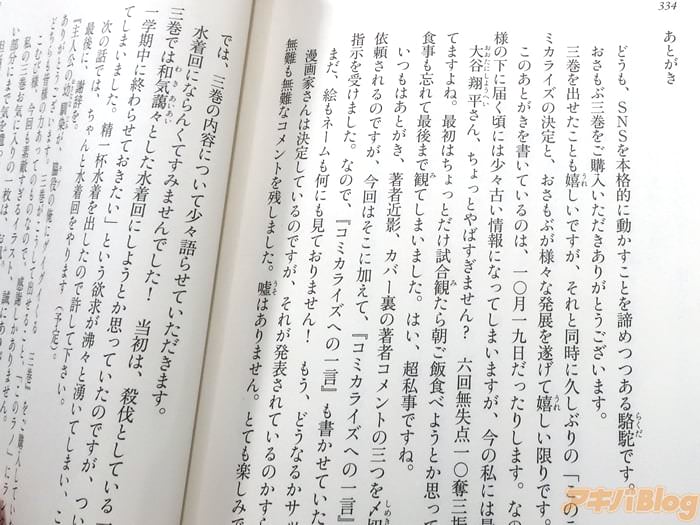 334
あとがき
どうも、SNSを本格的に動かすことを諦めつつある駱駝です。
らくだ
おさもぶ三巻をご購入いただきありがとうございます。
三巻を出せたことも嬉しいですが、それと同時に久しぶりの『この
うれ
ミカライズの決定と、おさもぶが様々な発展を遂げて嬉しい限りです。
うれ
このあとがきを書いているのは、一〇月一九日だったりします。な
様の下に届く頃には少々古い情報になってしまいますが、今の私には最
大谷翔平さん、ちょっとやばすぎません? 六回無失点一〇奪三振
おおたにしょうへい
てますよね。最初はちょっとだけ試合観たら朝ご飯食べようとか思って
み
食事も忘れて最後まで観てしまいました。はい、超私事ですね。
み
いつもはあとがき、著者近影、カバー裏の著者コメントの三つを〆切
しめき
依頼されるのですが、今回はそこに加えて、『コミカライズへの一言』
指示を受けました。なので、『コミカライズへの一言』も書かせていた
まだ、絵もネームも何にも見ておりません! もう、どうなるかサッ
漫画家さんは決定しているのですが、それが発表されているのかすら
無難も無難なコメントを残しました。嘘はありません。とても楽しみで
うそ
では、三巻の内容について少々語らせていただきます。
水着回にならんくてすみませんでした! 当初は、殺伐としている一
三巻では和気藹々とした水着回にしようとか思っていたのですが、つい
わきあいあい
一学期中に終わらせておきたい」という欲求が沸々と湧いてしまい、こ
てしまいました。精一杯水着を出したので許して下さい。
次の話では、ちゃんと水着回をやります(予定)。
最後に、謝辞を。
アキバBlog